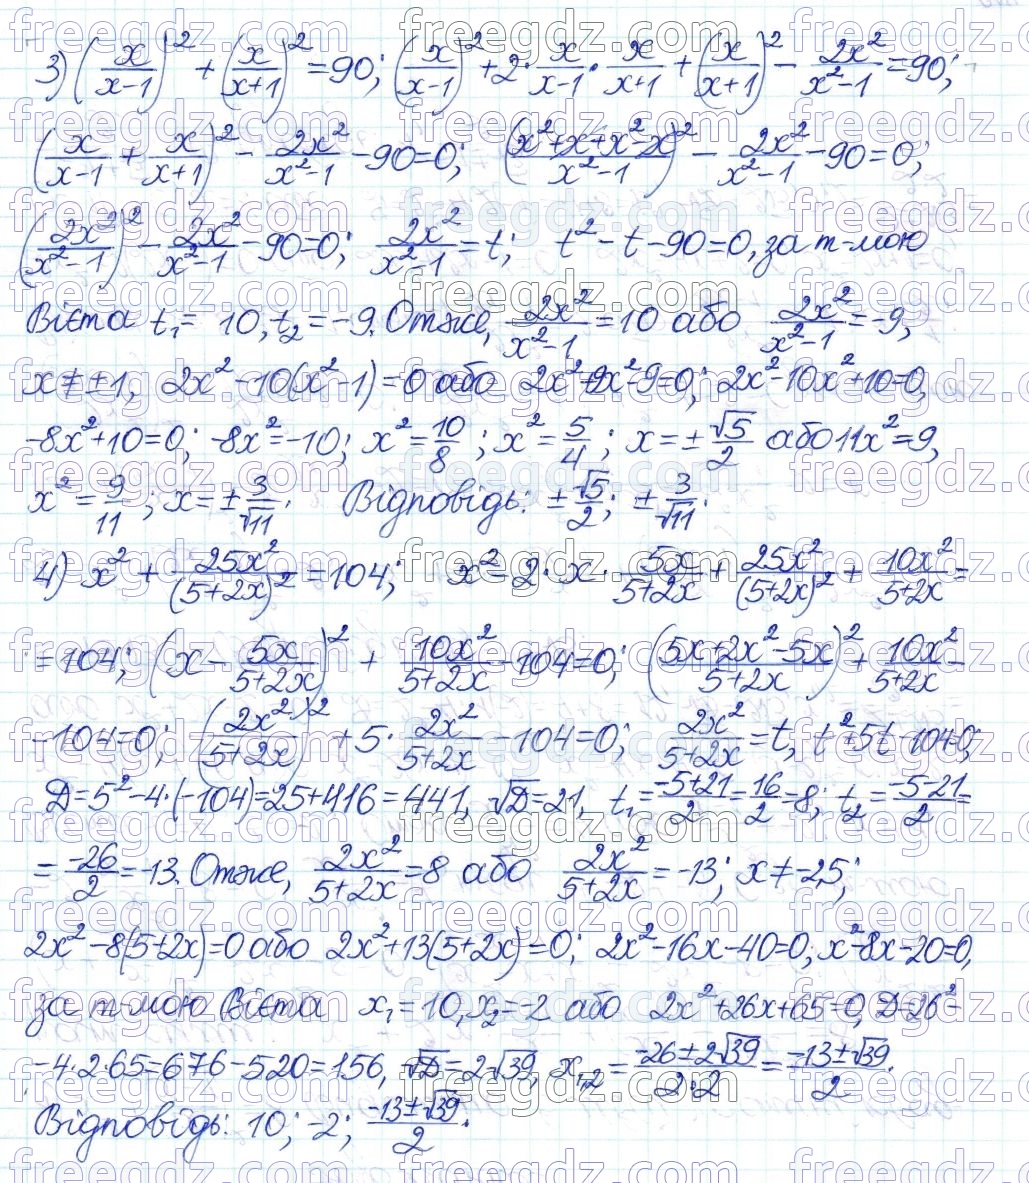 3) (x/(x-1))² + (x/(x+1))² = 90; (x/(x-1))² + 2·x/(x-1)·x/(x+1) + (x/(x+1))² - 2x²/(x²-1) = 90;
(x/(x-1) + x/(x+1))² - 2x²/(x²-1) - 90 = 0; ((x²+x+x²-x)/(x²-1))² - 2x²/(x²-1) - 90 = 0;
(2x²/(x²-1))² - 2x²/(x²-1) - 90 = 0; 2x²/(x²-1) = t; t² - t - 90 = 0, за т-мою
Вієта t₁ = 10, t₂ = -9. Отже, 2x²/(x²-1) = 10 або 2x²/(x²-1) = -9,
x ≠ ±1, 2x² - 10(x²-1) = 0 або 2x²+9x²-9=0; 2x²-10x²+10=0,
-8x²+10=0; -8x²=-10; x² = 10/8; x² = 5/4; x = ± √5/2 або 11x²=9,
x² = 9/11; x = ± 3/√11. Відповідь: ± √5/2; ± 3/√11.
4) x² + 25x²/(5+2x)² = 104; x² - 2·x·5x/(5+2x) + 25x²/(5+2x)² + 10x²/(5+2x) =
= 104; (x - 5x/(5+2x))² + 10x²/(5+2x) - 104 = 0; ((5x+2x²-5x)/(5+2x))² + 10x²/(5+2x) -
- 104 = 0; (2x²/(5+2x))² + 5·2x²/(5+2x) - 104 = 0; 2x²/(5+2x) = t, t²+5t-104=0;
D=5²-4·(-104)=25+416=441, √D=21, t₁ = (-5+21)/2 = 16/2 = 8; t₂ = (-5-21)/2 =
= -26/2 = -13. Отже, 2x²/(5+2x) = 8 або 2x²/(5+2x) = -13; x ≠ -2,5;
2x²-8(5+2x)=0 або 2x²+13(5+2x)=0; 2x²-16x-40=0; x²-8x-20=0,
за т-мою Вієта x₁ = 10, x₂ = -2 або 2x²+26x+65=0, D=26²-
-4·2·65=676-520=156, √D=2√39, x₁,₂ = (-26±2√39)/(2·2) = (-13±√39)/2.
Відповідь: 10; -2; (-13±√39)/2.